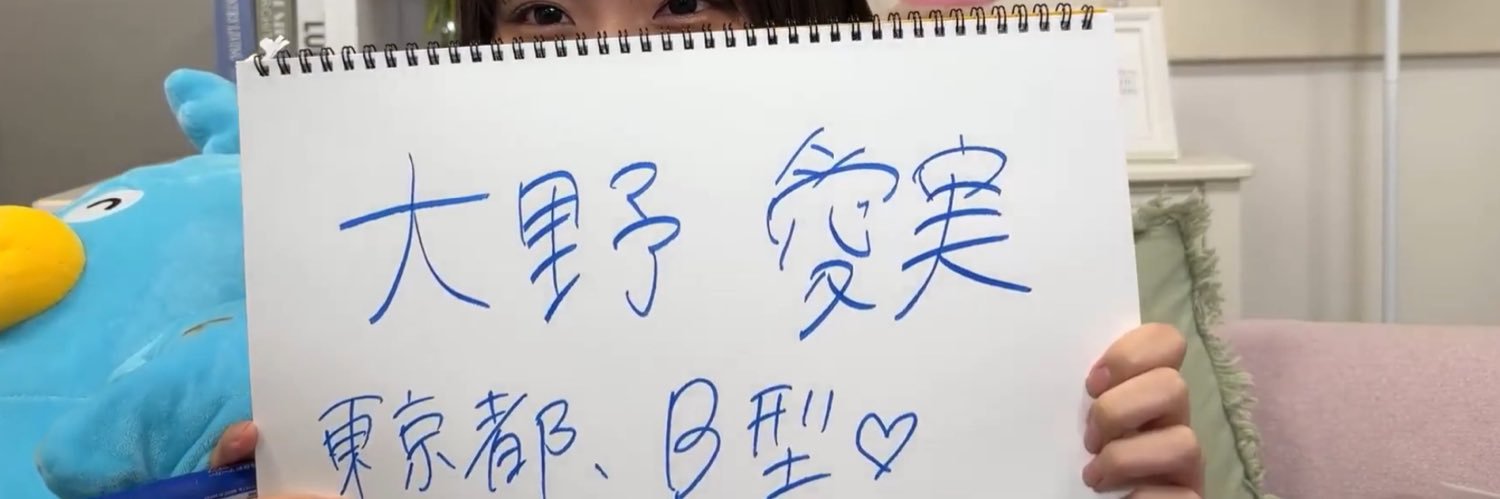 大野 愛実
東京都、B型♡